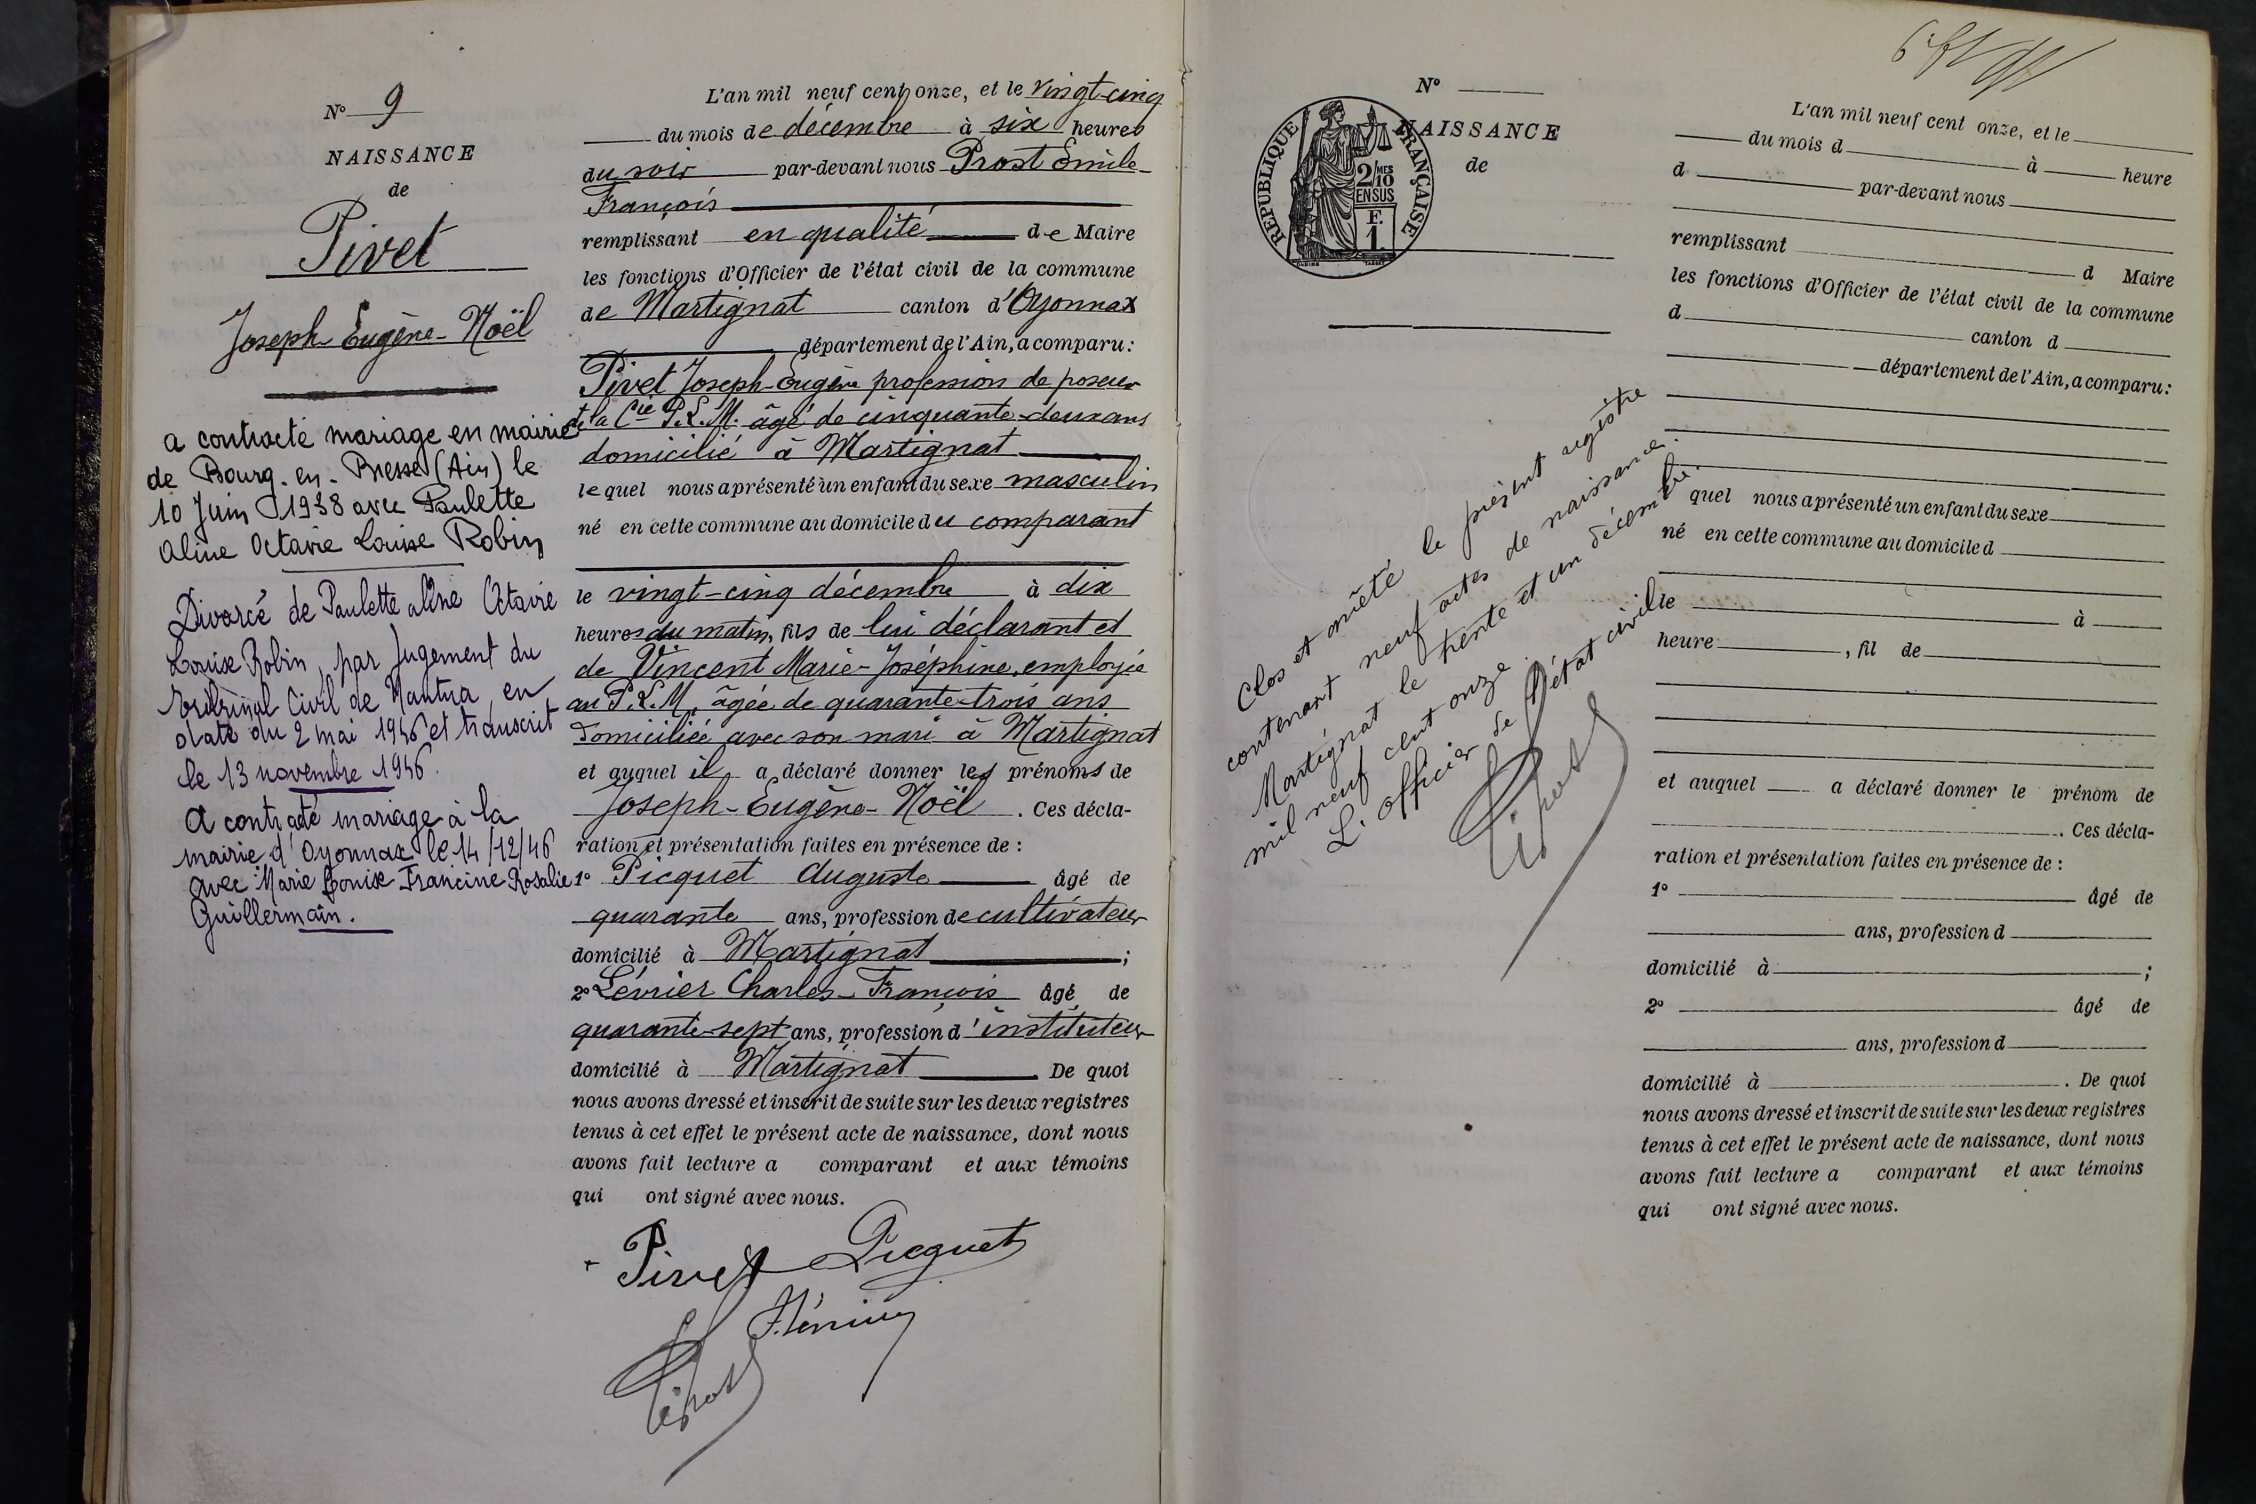 N° 9
NAISSANCE
de
Pivet
Joseph-Eugène-Noël
a contracté mariage en mairie
de Bourg-en-Bresse (Ain) le
10 Juin 1938 avec Paulette
Aline Octavie Louise Robin
Divorcé de Paulette aline Octavie
Louise Robin, par Jugement du
tribunal Civil de Nantua, en
date du 2 mai 1946 et transcrit
le 13 novembre 1946.
A contracté mariage à la
mairie d'Oyonnax le 14/12/46
avec Marie Louise Francine Rosalie
Guillermain.
L'an mil neuf cent onze, et le vingt-cinq
du mois de décembre à six heures
du soir par-devant nous Prost Emile-
François
remplissant en qualité de Maire
les fonctions d'Officier de l'état civil de la commune
de Martignat canton d'Oyonnax
département de l'Ain, a comparu:
Pivet Joseph-Eugène profession de poseur
de la Cie P.L.M. âgé de cinquante-deux ans
domicilié à Martignat
lequel nous a présenté un enfant du sexe masculin
né en cette commune au domicile du comparant
le vingt-cinq décembre à dix
heures du matin, fils de lui déclarant et
de Vincent Marie-Joséphine, employée
au P.L.M. âgée de quarante-trois ans
domiciliée avec son mari à Martignat
et auquel il a déclaré donner les prénoms de
Joseph-Eugène-Noël. Ces décla-
ration et présentation faites en présence de :
1° Picquet Auguste âgé de
quarante ans, profession de cultivateur
domicilié à Martignat ;
2° Lévrier Charles-François âgé de
quarante-sept ans, profession d'instituteur
domicilié à Martignat De quoi
nous avons dressé et inscrit de suite sur les deux registres
tenus à cet effet le présent acte de naissance, dont nous
avons fait lecture a comparant et aux témoins
qui ont signé avec nous.
Pivet Picquet
N°
NAISSANCE
de
RÉPUBLIQUE FRANÇAISE
2/MES
10
EN SUS
F.
1
Clos et arrêté le présent registre
contenant neuf actes de naissance.
Martignat le trente et un décembre
mil neuf cent onze.
L'officier de l'état civil
L'an mil neuf cent onze, et le
du mois d à heure
d par-devant nous
remplissant d Maire
les fonctions d'Officier de l'état civil de la commune
d canton d
département de l'Ain, a comparu:
quel nous a présenté un enfant du sexe
né en cette commune au domicile d
le à
heure , fil de
et auquel a déclaré donner le prénom de
. Ces décla-
ration et présentation faites en présence de :
1° âgé de
ans, profession d
domicilié à ;
2° âgé de
ans, profession d
domicilié à . De quoi
nous avons dressé et inscrit de suite sur les deux registres
tenus à cet effet le présent acte de naissance, dont nous
avons fait lecture a comparant et aux témoins
qui ont signé avec nous.